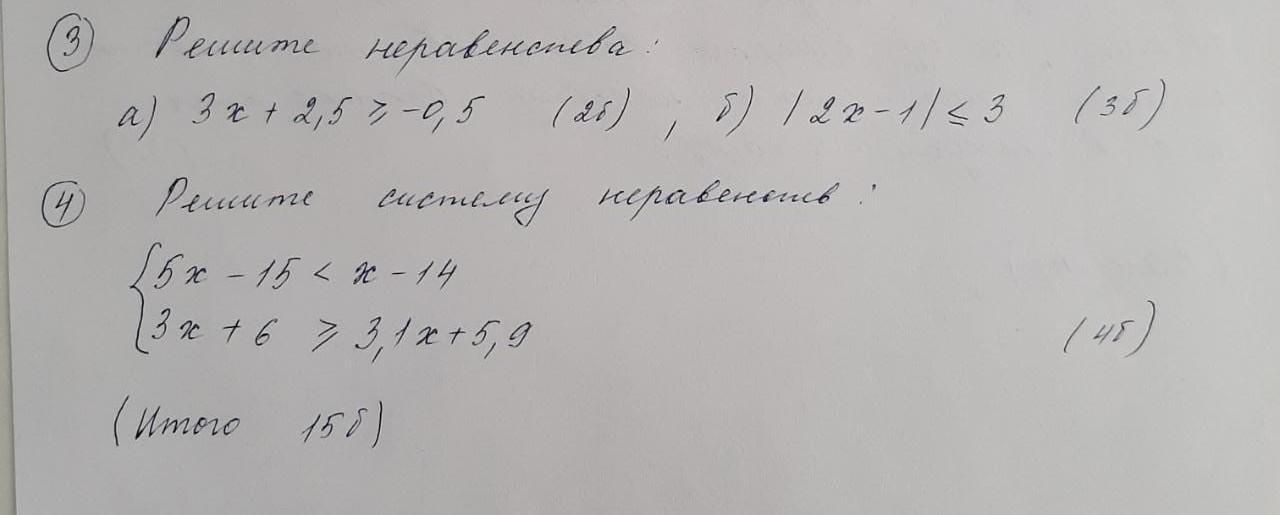 3 Решите неравенства:
а) 3x + 2,5 ⩾ -0,5 (2б) , б) |2x-1| ≤ 3 (3б)
4 Решите систему неравенств:
{5x - 15 < x - 14
3x + 6 ⩾ 3,1x + 5,9 (4б)
(Итого 15б)